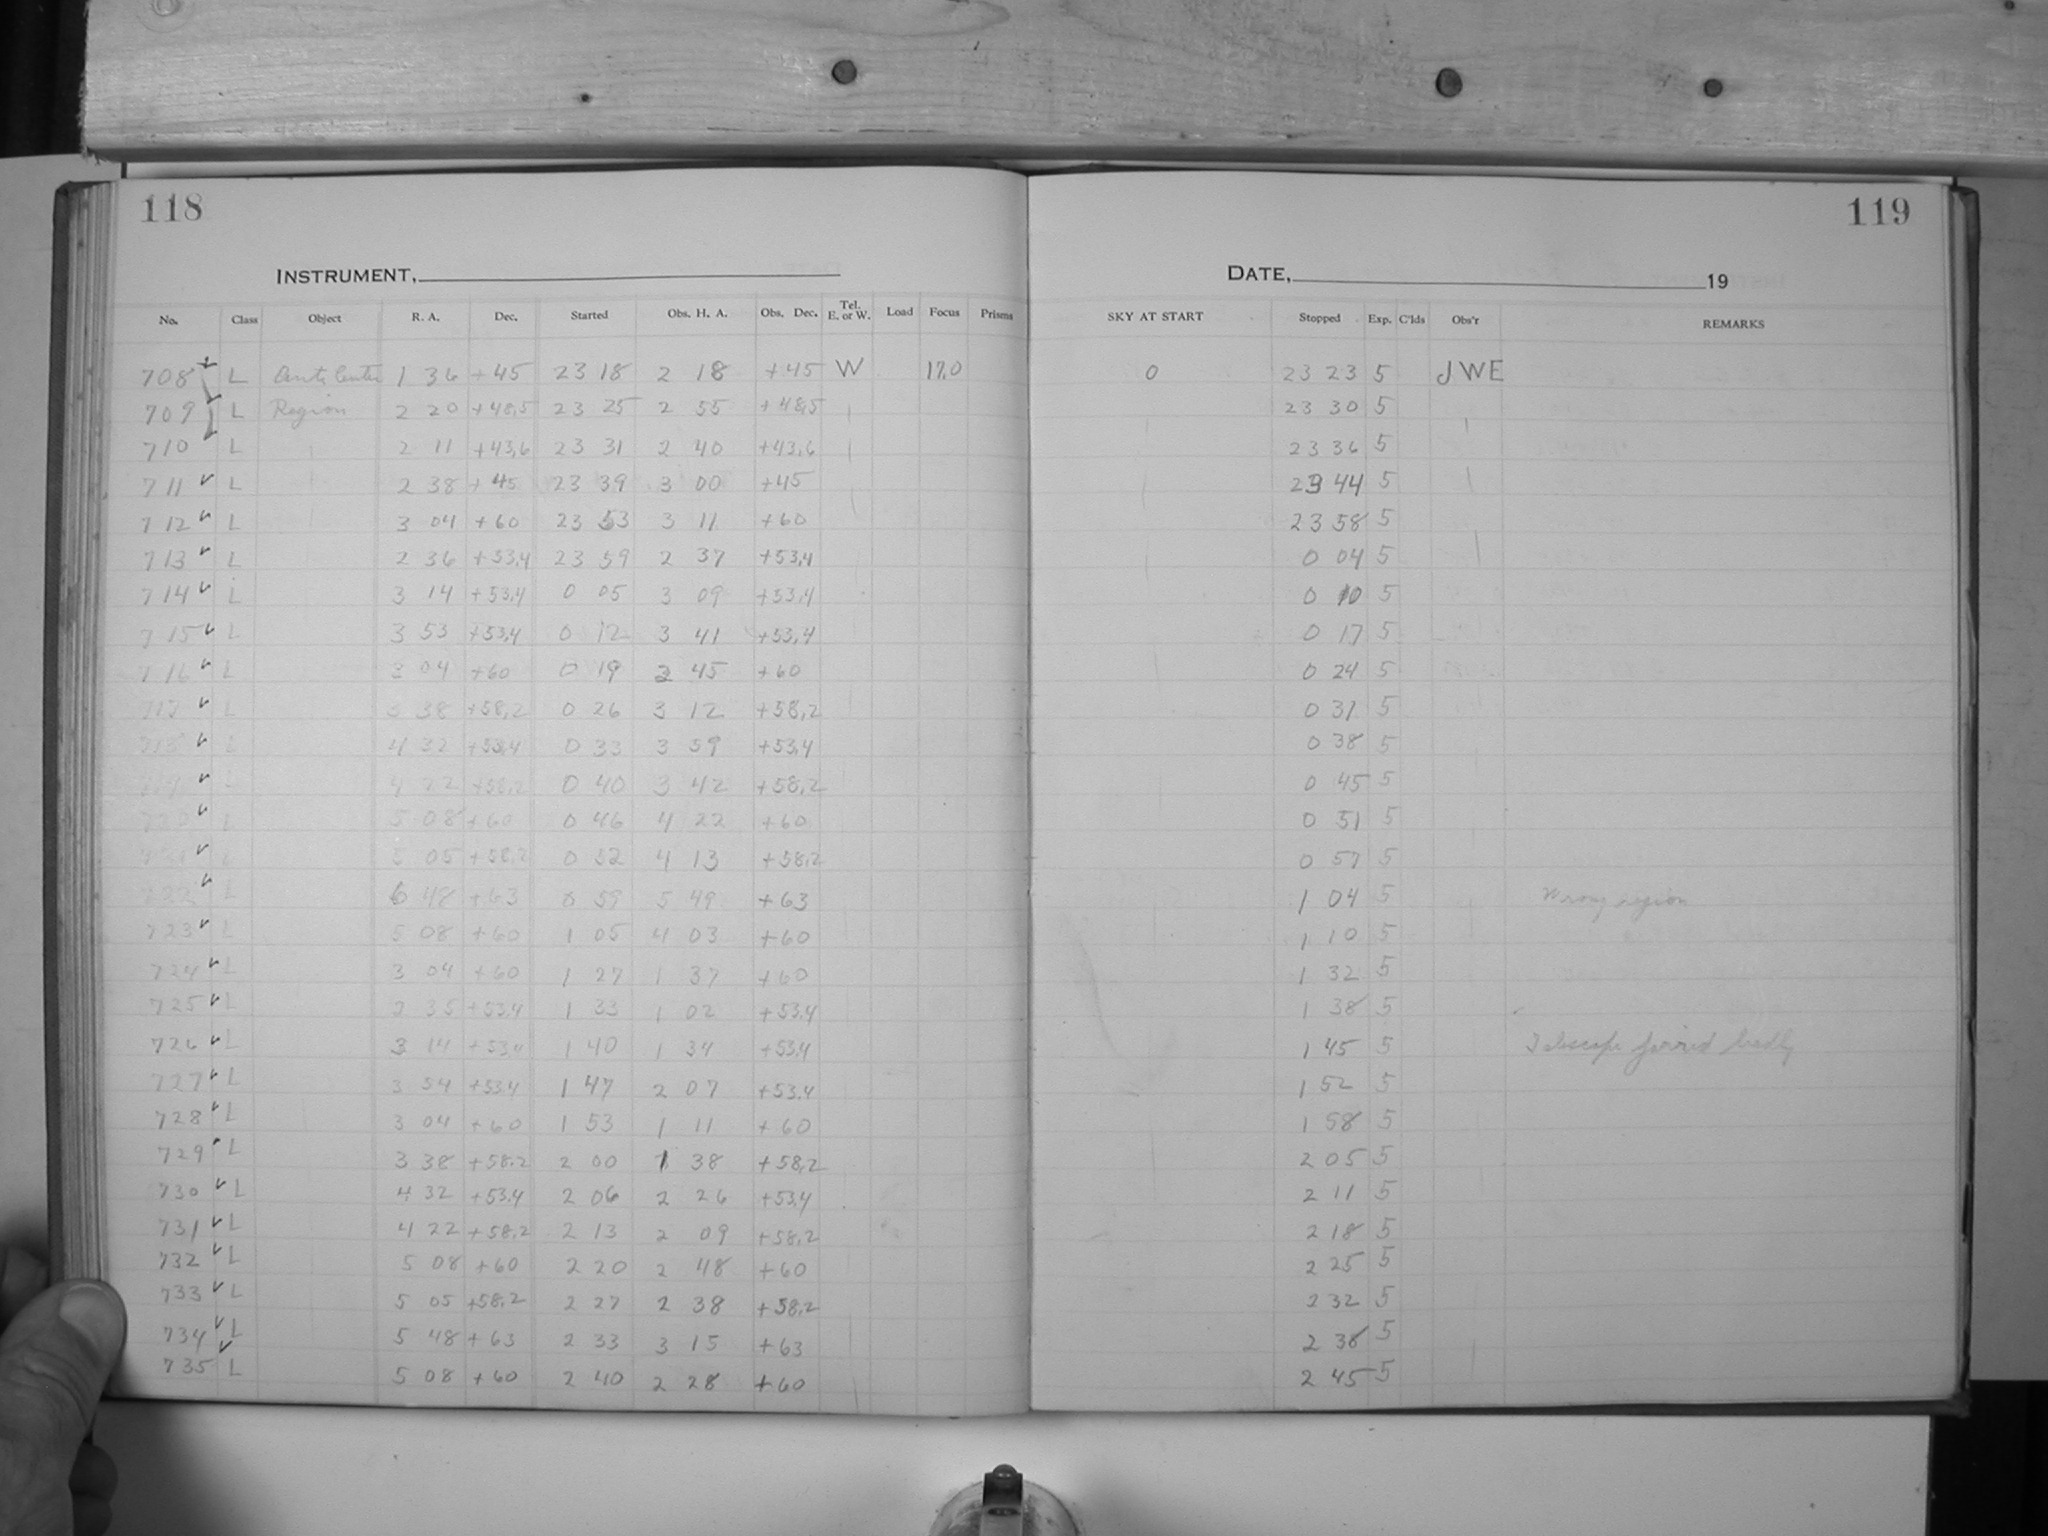 118
119
INSTRUMENT,
DATE, 19
No. Class Object R. A. Dec. Started Obs. H. A. Obs. Dec. Tel. E. or W. Load Focus Prisms SKY AT START Stopped Exp. C'lds Obs'r REMARKS
708 L Anti Center 1 36 +45 23 18 2 18 +45 W 17.0 0 23 23 5 JWE
709 L Region 2 20 +48.5 23 25 2 55 +48.5 23 30 5
710 L 2 11 +43.6 23 31 2 40 +43.6 23 36 5
711 L 2 38 +45 23 39 3 00 +45 23 44 5
712 L 3 04 +60 23 53 3 11 +60 23 58 5
713 L 2 36 +53.4 23 59 2 37 +53.4 0 04 5
714 L 3 14 +53.4 0 05 3 09 +53.4 0 10 5
715 L 3 53 +53.4 0 12 3 41 +53.4 0 17 5
716 L 3 04 +60 0 19 2 45 +60 0 24 5
717 L 3 38 +58.2 0 26 3 12 +58.2 0 31 5
718 L 4 32 +53.4 0 33 3 59 +53.4 0 38 5
719 L 4 22 +58.2 0 40 3 42 +58.2 0 45 5
720 L 5 08 +60 0 46 4 22 +60 0 51 5
721 L 5 05 +58.2 0 52 4 13 +58.2 0 57 5
722 L 6 48 +63 0 59 5 49 +63 1 04 5 Wrong region
723 L 5 08 +60 1 05 4 03 +60 1 10 5
724 L 3 04 +60 1 27 1 37 +60 1 32 5
725 L 2 35 +53.4 1 33 1 02 +53.4 1 38 5
726 L 3 14 +53.4 1 40 1 34 +53.4 1 45 5 Telescope jarred badly
727 L 3 54 +53.4 1 47 2 07 +53.4 1 52 5
728 L 3 04 +60 1 53 1 11 +60 1 58 5
729 L 3 38 +58.2 2 00 1 38 +58.2 2 05 5
730 L 4 32 +53.4 2 06 2 26 +53.4 2 11 5
731 L 4 22 +58.2 2 13 2 09 +58.2 2 18 5
732 L 5 08 +60 2 20 2 48 +60 2 25 5
733 L 5 05 +58.2 2 27 2 38 +58.2 2 32 5
734 L 5 48 +63 2 33 3 15 +63 2 38 5
735 L 5 08 +60 2 40 2 28 +60 2 45 5